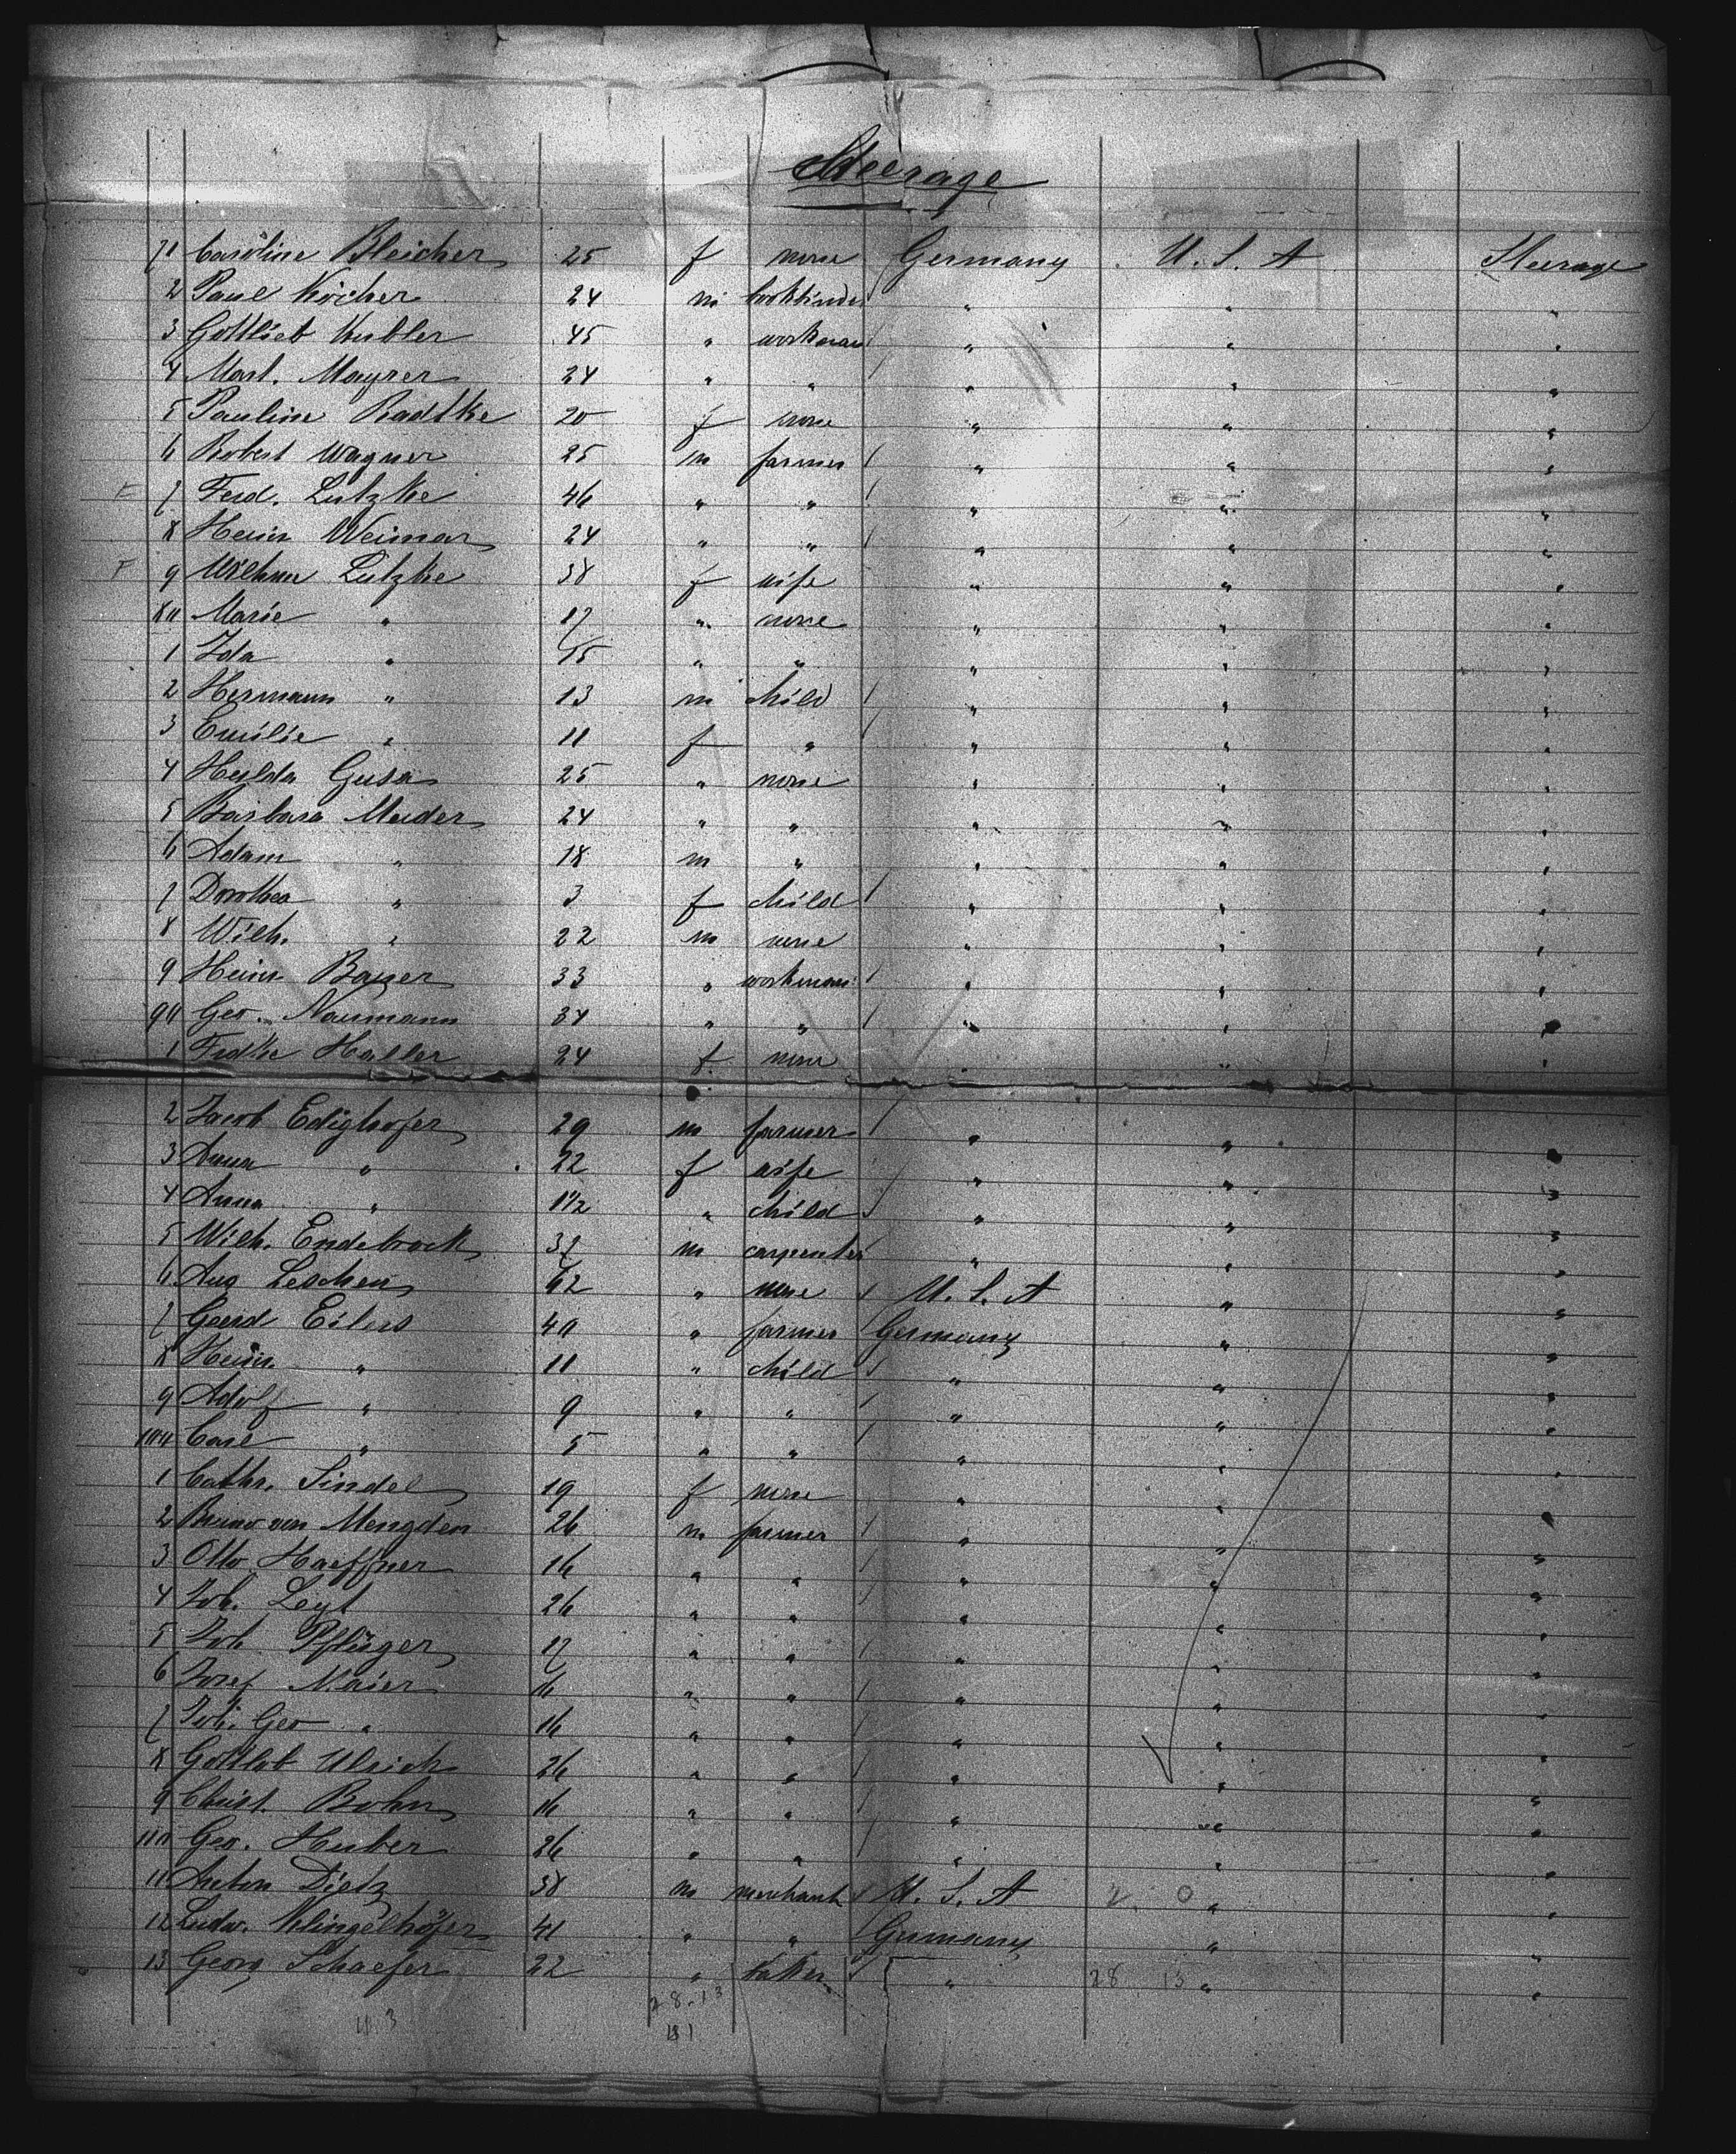 Steerage
71 Caroline Bleicher 25 f none Germany U. S. A Steerage
2 Paul Köcher 24 m bookbinder " " "
3 Gottlieb Kubler 45 " workman " " "
4 Mart. Mayrer 24 " " " " "
5 Pauline Radtke 20 f none " " "
6 Robert Wagner 25 m farmer " " "
7 Ferd. Lutzke 46 " " " " "
8 Heinr Weimar 24 " " " " "
9 Wilhm Lutzke 38 f wife " " "
80 Marie " 17 " none " " "
1 Ida " 15 " " " " "
2 Hermann " 13 m child " " "
3 Emilie " 11 f " " " "
4 Hulda Gusa 25 " none " " "
5 Barbara Meider 24 " " " " "
6 Adam " 18 m " " " "
7 Dorothea " 3 f child " " "
8 Wilh. " 22 m none " " "
9 Heinr Bayer 33 " workman " " "
90 Geo. Naumann 34 " " " " "
1 Fridke Haller 24 f none " " "
2 Jacob Edighofer 29 m farmer " " "
3 Anna " 22 f wife " " "
4 Anna " 1 1/2 " child " " "
5 Wilh. Endebrock 37 m carpenter " " "
6 Aug Leschen 62 " none U. S. A " "
7 Geerd Eilers 40 " farmer Germany " "
8 Heinr. " 11 " child " " "
9 Adolf " 9 " " " " "
100 Carl " 5 " " " " "
1 Cathr. Sindel 19 f none " " "
2 Bruno von Mengden 26 m farmer " " "
3 Otto Haeffner 16 " " " " "
4 Joh. Leyt 26 " " " " "
5 Joh Pflüger 17 " " " " "
6 Josef Maier 16 " " " " "
7 Joh. Geo " 16 " " " " "
8 Gottlob Ulrich 26 " " " " "
9 Christ. Bohn 16 " " " " "
110 Geo. Huber 26 " " " " "
11 Anton Dietz 38 m merchant U. S. A 2 0 " "
12 Ludw. Klingelhöfer 41 " " Germany " "
13 Georg Schaefer 22 " baker " 28 13 " "
28.13